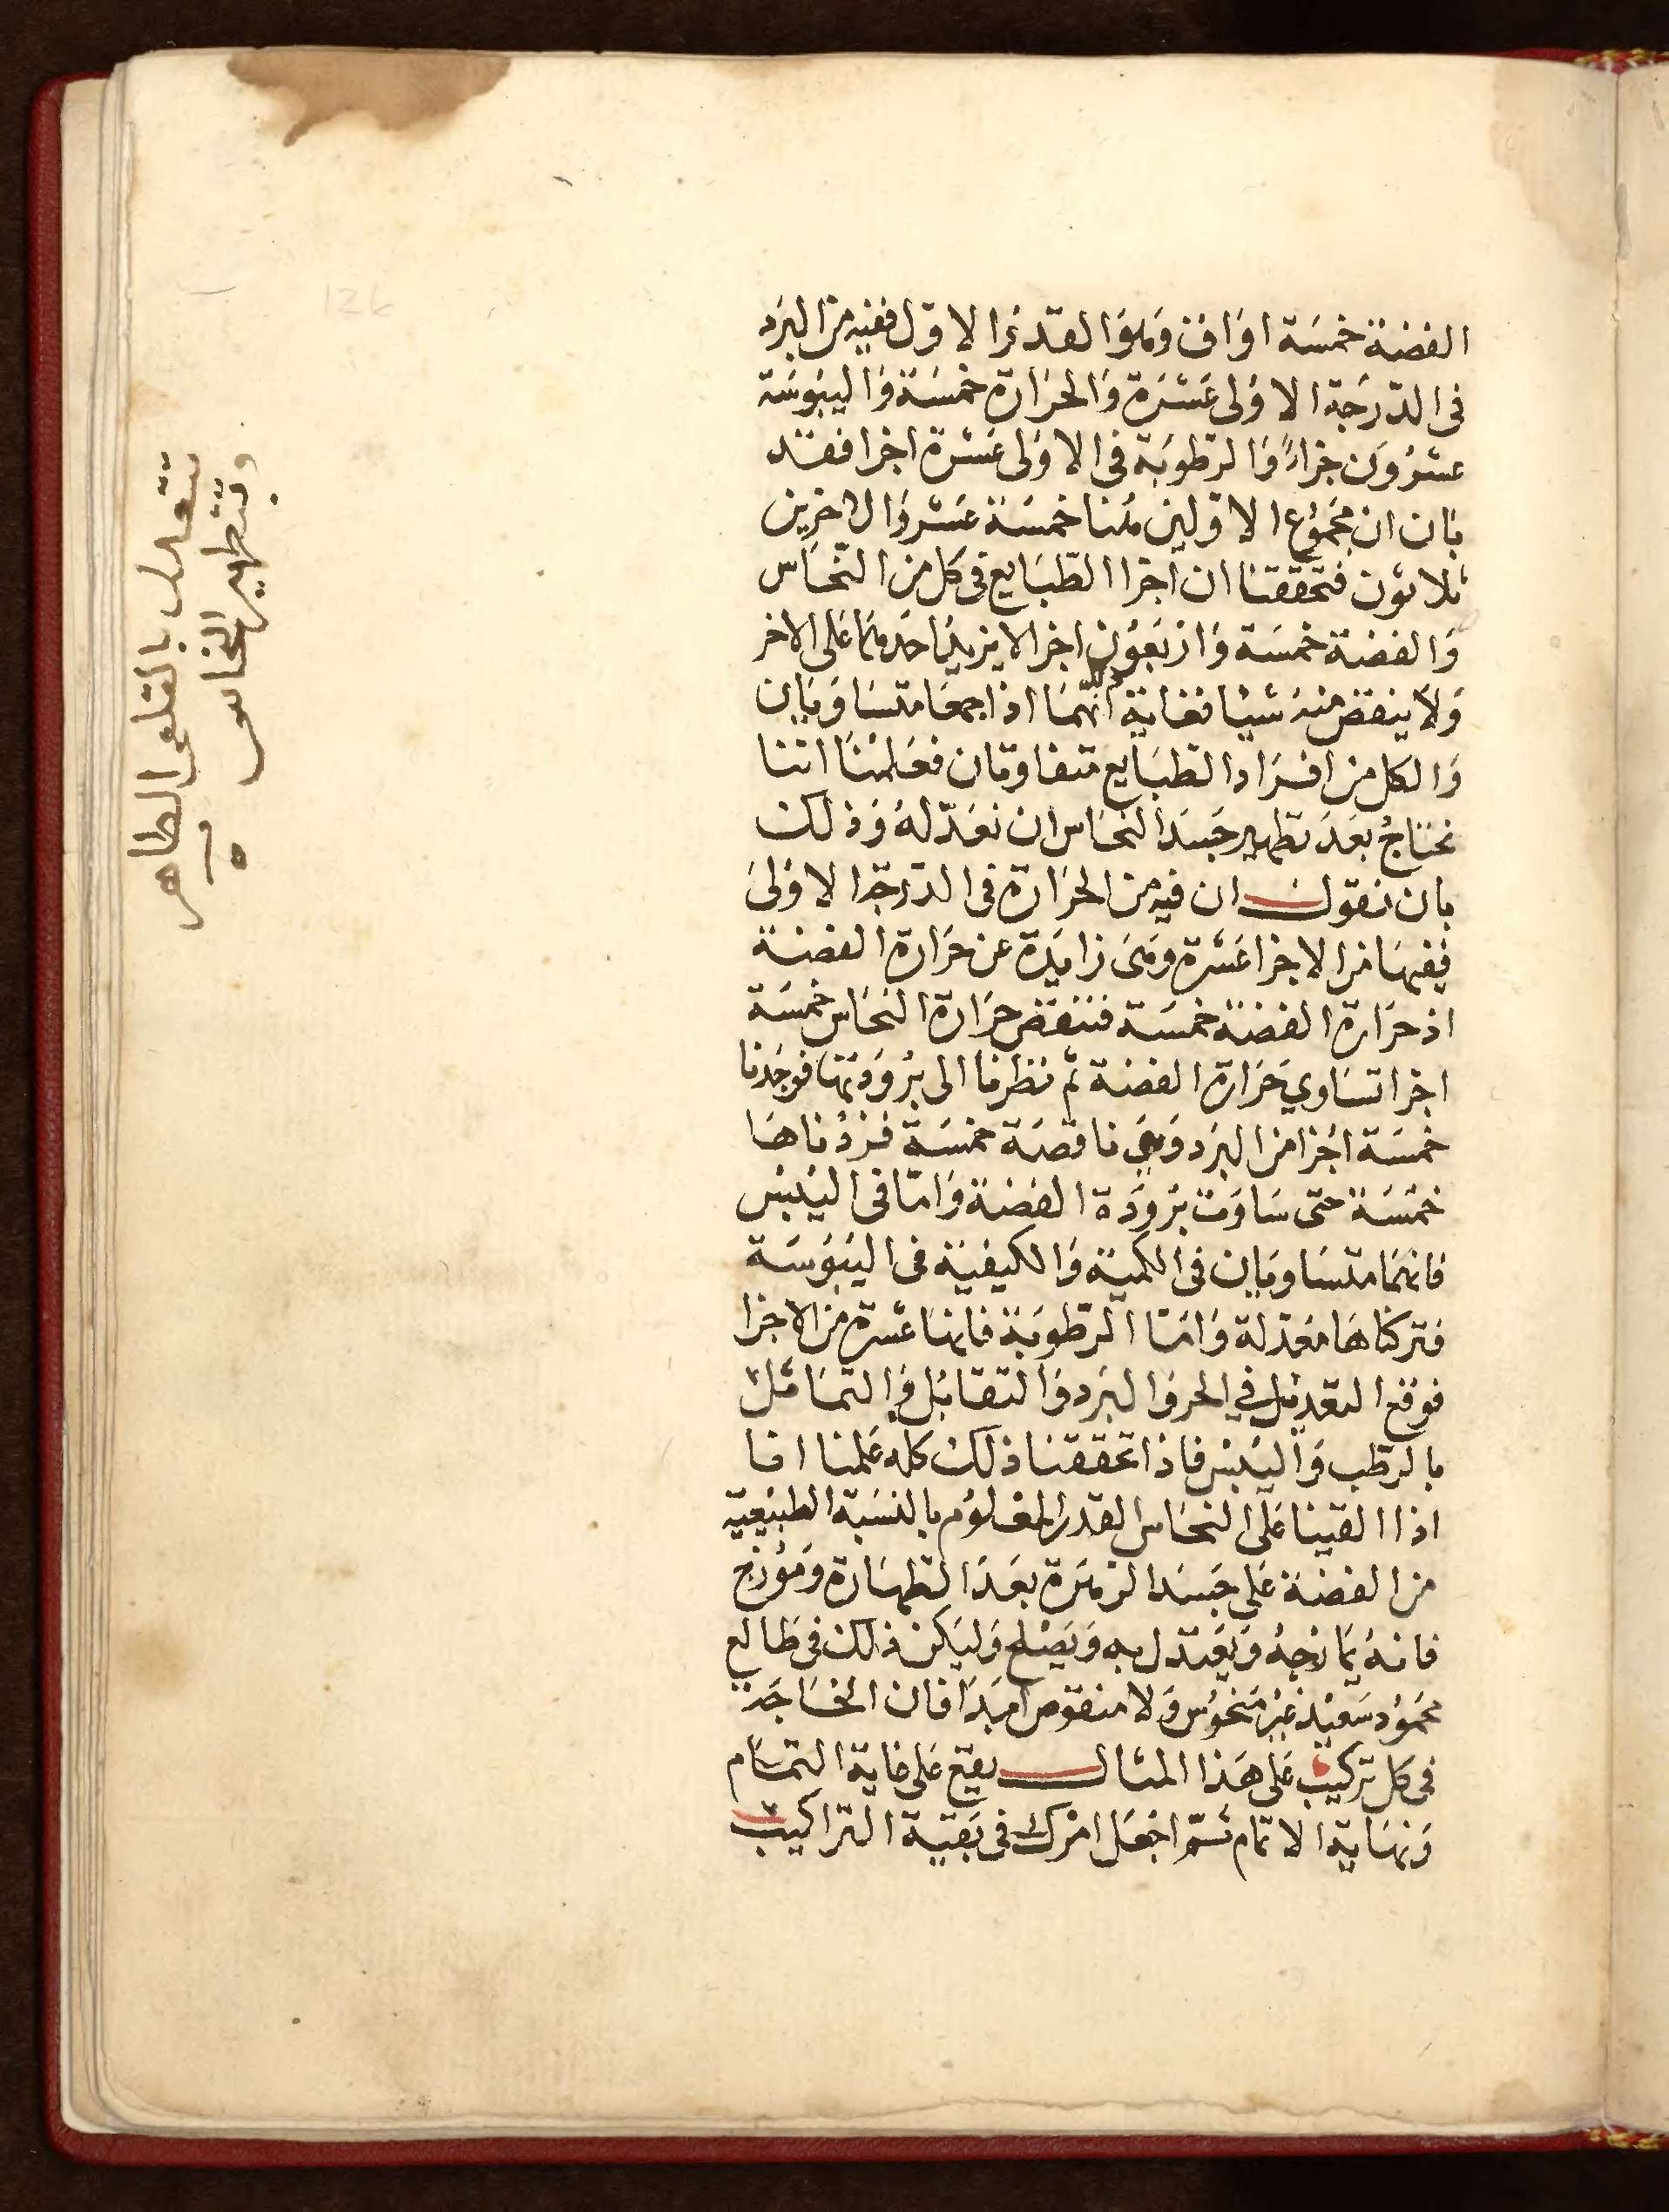 الفضة خمسة اواق وهو القدر الاول ففيه من البرد
فى الدرجة الاولى عشرة والحرارة خمسة واليبوسة
عشرون جزاءً والرطوبة فى الاولى عشرة اجزا فقد
بان ان مجموع الاولين هنا خمسة عشر والاخرين
ثلاثون فتحققنا ان اجزا الطبايع فى كل من النحاس
والفضة خمسة واربعون اجزا لا يزيد احدهما على الاخر
ولا ينقص منه شيئا فغاية انهما اذا جمعا متساويان
والكل من افراد الطبايع متفاوتان فعلمنا اننا
نحتاج بعد تطهير جسد النحاس ان نعدله وذلك
بان نقول ان فيه من الحرارة فى الدرجة الاولى
ففيها من الاجزا عشرة وهى زايدة عن حرارة الفضة
اذ حرارة الفضة خمسة فننقص حرارة النحاس خمسة
اجزا تساوي حرارة الفضة ثم نظرنا الى برودتها فوجدنا
خمسة اجزا من البرد وهي ناقصة خمسة فزدناها
خمسة حتى ساوت برودة الفضة واما فى اليبس
فانهما متساويان فى الكمية والكيفية فى اليبوسة
فتركناها معتدلة واما الرطوبة فانها عشرة من الاجزا
فوقع التعديل في الحر والبرد والتقابل والتماثل
بالرطب واليبس فاذا تحققنا ذلك كله علمنا انا
اذا القينا على النحاس القدر المعلوم بالنسبة الطبيعية
من الفضة على جسد الزهرة بعد الطهارة ومورج
فانه يمازجه ويعتدل به ويصلح وليكن ذلك فى طالع
محمود سعيد غير منحوس ولا منقوص ابدا فان
فى كل تركيب على هذا المثال يقع على غاية التمام
ونهاية الاتمام ثم اجعل امرك فى بقية التراكيب
وبتطهير النحاس
تتعدل بالقلعي الطاهر